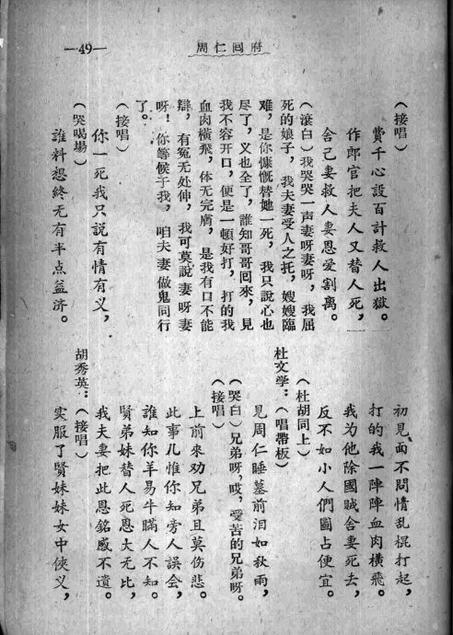 周仁囘府
—49—
（接唱）
費千心設百計救人出獄。
作郎官把夫人又替人死，
舍己妻救人妻恩爱割离。
（滚白）我哭哭一声妻呀妻呀，我屈
死的娘子，我夫妻受人之托，嫂嫂臨
难，是你慷慨替她一死，我只說心也
尽了，义也全了，誰知哥哥囘來，見
我不容开口，便是一頓好打，打的我
血肉横飛，体无完膚，是我有口不能
辯，有冤无处伸，我可莫說妻呀妻
呀！你等候于我，咱夫妻做鬼同行
了。
（接唱）
你一死我只說有情有义，
（哭喝場）
誰料想終无有半点益济。
初見面不問情乱棍打起，
打的我一陣陣血肉横飛。
我为他除國賊舍妻死去，
反不如小人們圖占便宜。
（杜胡同上）
杜文学：（唱帶板）
見周仁睡墓前泪如秋雨，
（哭白）兄弟呀，哎，受苦的兄弟呀。
（接唱）
上前來劝兄弟且莫伤悲。
此事儿惟你知旁人誤会，
誰知你羊易牛瞞人不知。
賢弟妹替人死恩大无比，
我夫妻把此恩銘感不遺。
胡秀英：（接唱）
实服了賢妹妹女中俠义，